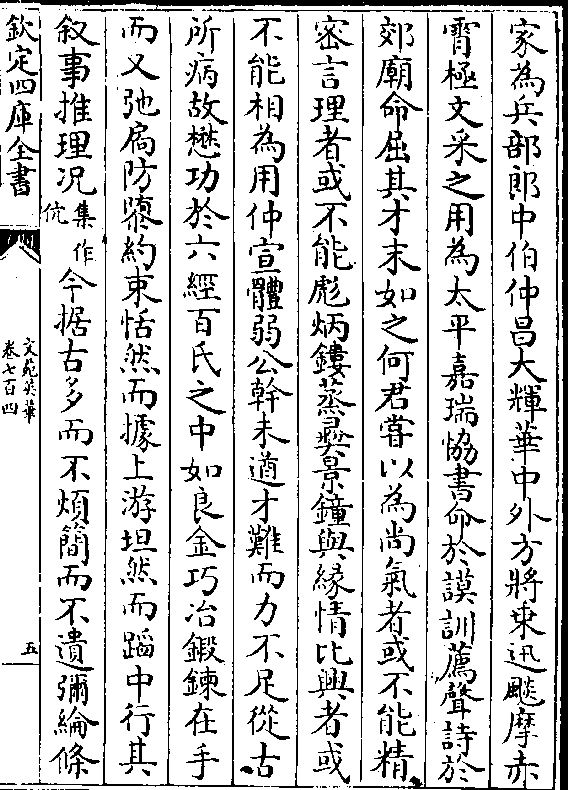 家為兵部郎中伯仲昌大輝華中外方將乗迅飇摩赤
霄極文采之用為太平嘉瑞恊書命於謨訓薦聲詩於
郊廟命屈其才末如之何君嘗以為尚氣者或不能精
密言理者或不能彪炳鏤蒸彛景鐘與縁情比興者或
不能相為用仲宣體弱公幹未遒才難而力不足從古
所病故懋功於六經百氏之中如良金巧冶鍛鍊在手
而又弛扃防隳約束恬然而據上游坦然而蹈中行其
叙事推理况集作伉今据古多而不煩簡而不遺彌綸條
欽定四庫全書
文苑英華
卷七百四
五